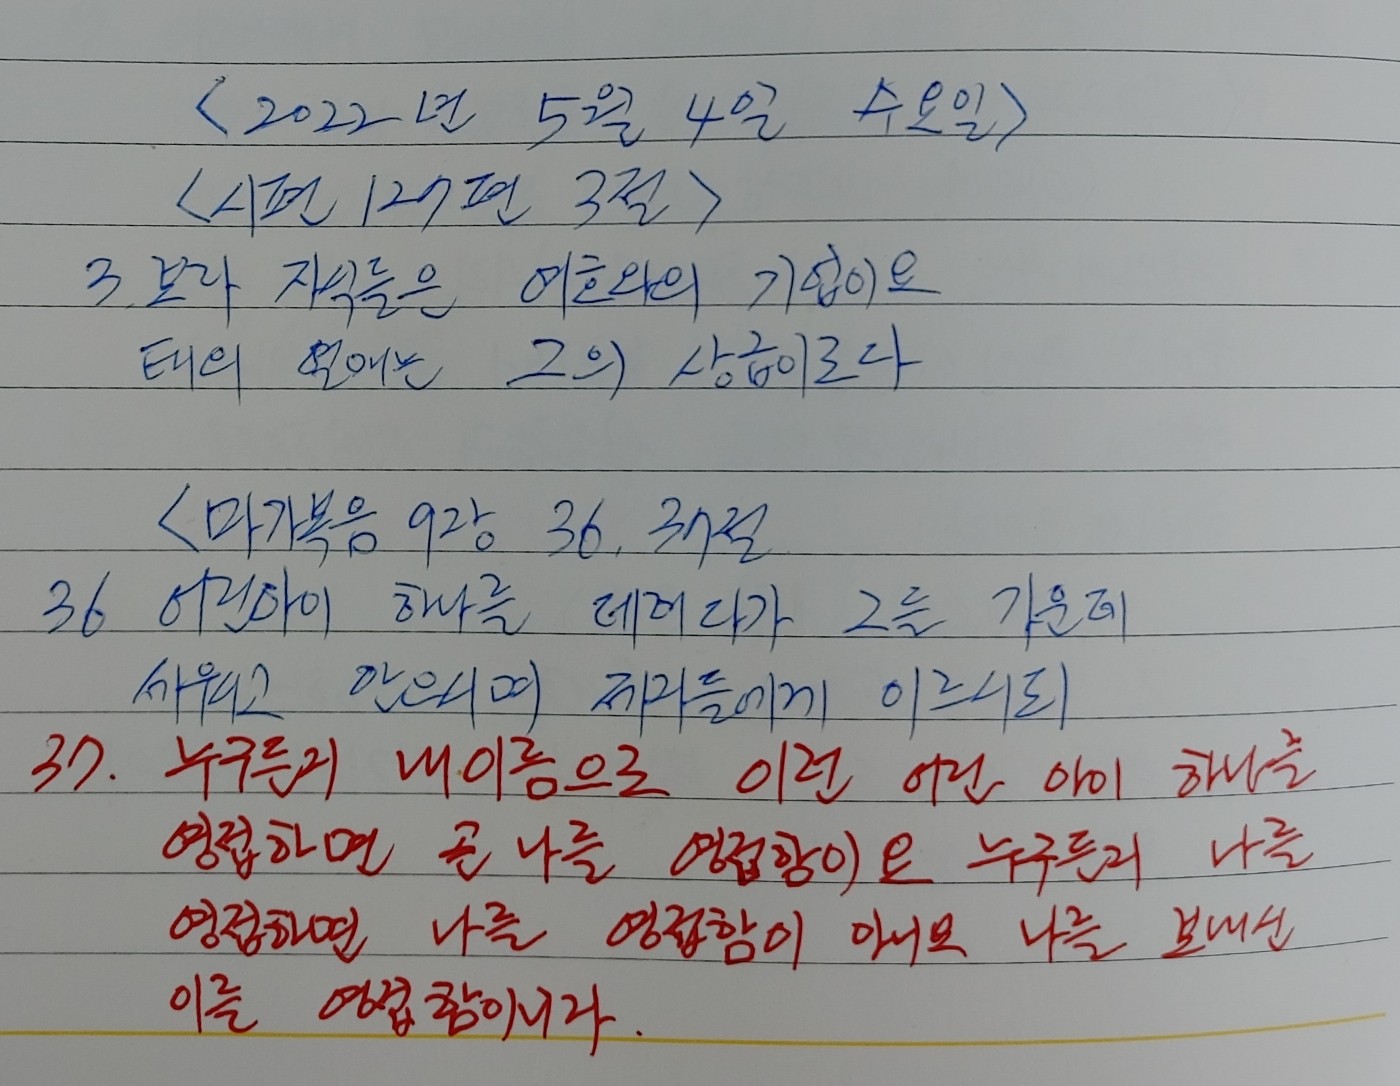 <2022년 5월 4일 수요일>
<시편 127편 3절>
3. 보라 자식들은 여호와의 기업이요
태의 열매는 그의 상급이로다
<마가복음 9장 36, 37절
36 어린아이 하나를 데려다가 그들 가운데
세우시고 안으시며 제자들에게 이르시되
37. 누구든지 내 이름으로 이런 어린 아이 하나를
영접하면 곧 나를 영접함이요 누구든지 나를
영접하면 나를 영접함이 아니요 나를 보내신
이를 영접함이니라.